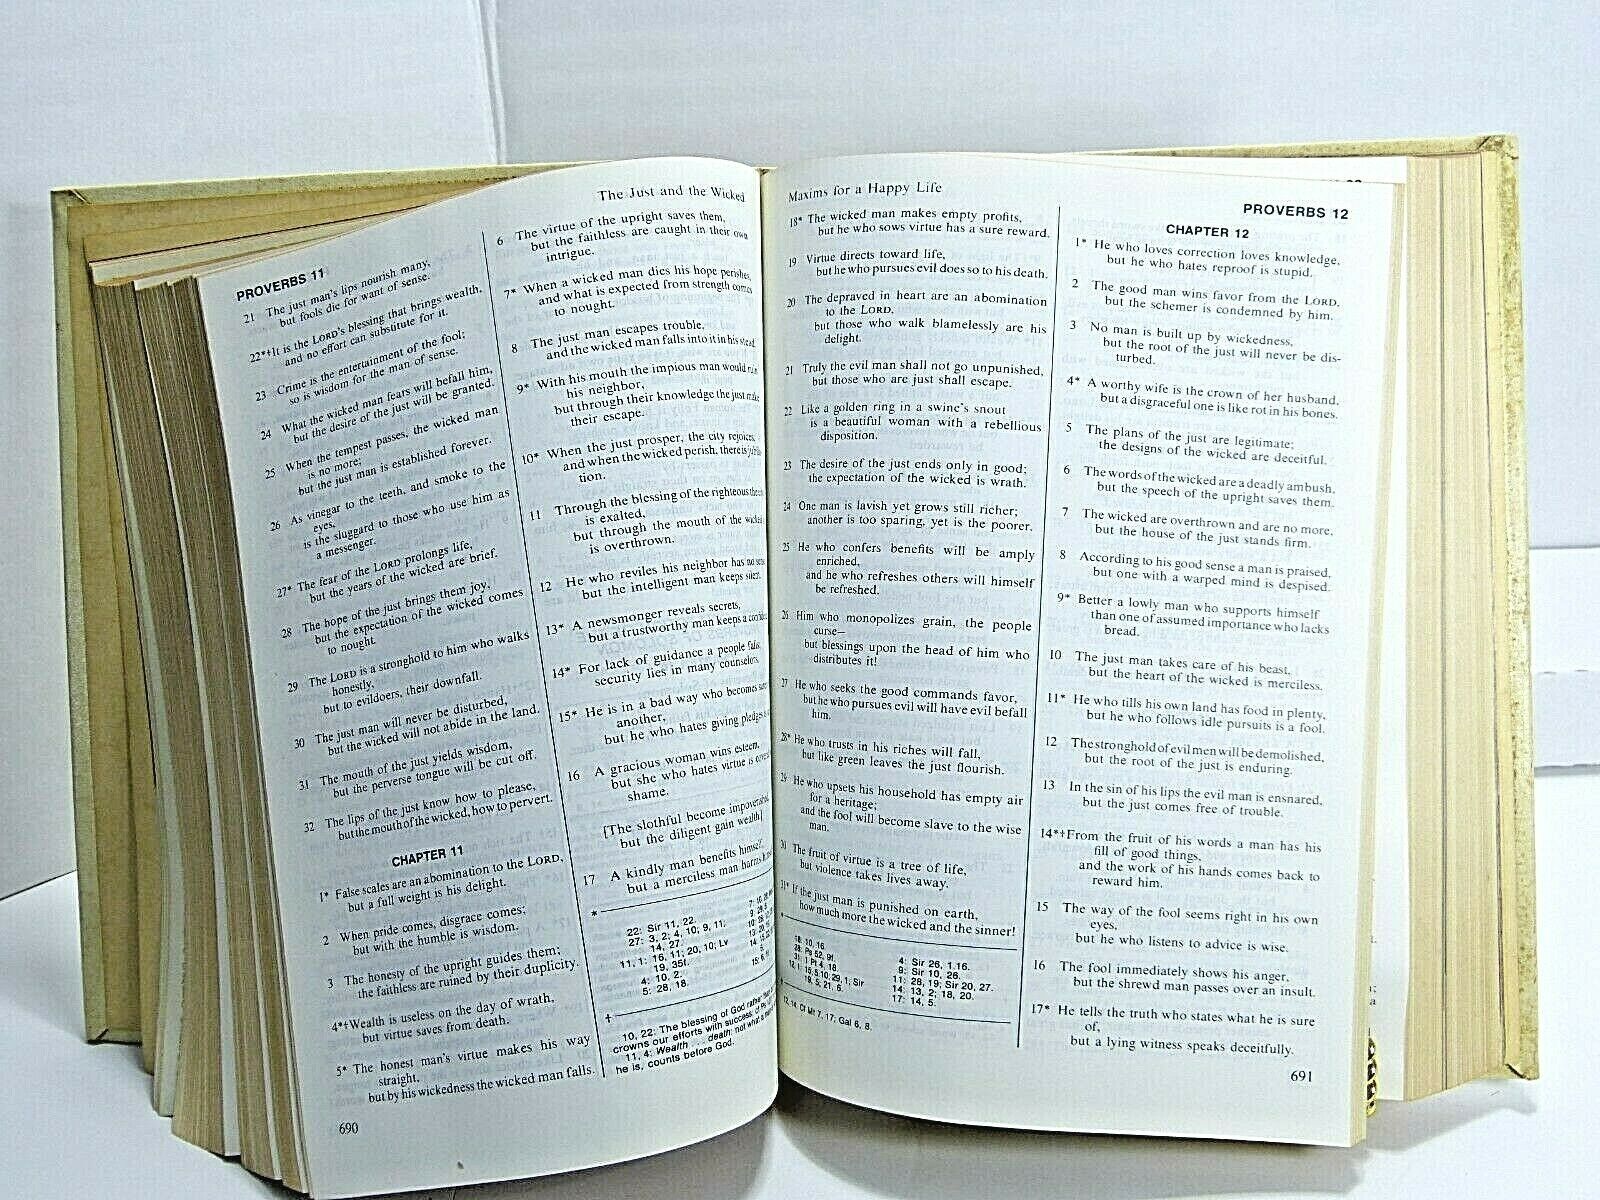 The Just and the Wicked
PROVERBS 11
21 The just man's lips nourish many,
but fools die for want of sense.
22*†It is the LORD's blessing that brings wealth,
and no effort can substitute for it.
23 Crime is the entertainment of the fool;
so is wisdom for the man of sense.
24 What the wicked man fears will befall him,
but the desire of the just will be granted.
25 When the tempest passes, the wicked man
is no more;
but the just man is established forever.
26 As vinegar to the teeth, and smoke to the
eyes,
is the sluggard to those who use him as
a messenger.
27* The fear of the LORD prolongs life,
but the years of the wicked are brief.
28 The hope of the just brings them joy,
but the expectation of the wicked comes
to nought.
29 The LORD is a stronghold to him who walks
honestly,
but to evildoers, their downfall.
30 The just man will never be disturbed,
but the wicked will not abide in the land.
31 The mouth of the just yields wisdom,
but the perverse tongue will be cut off.
32 The lips of the just know how to please,
but the mouth of the wicked, how to pervert.
CHAPTER 11
1* False scales are an abomination to the LORD,
but a full weight is his delight.
2 When pride comes, disgrace comes;
but with the humble is wisdom.
3 The honesty of the upright guides them;
the faithless are ruined by their duplicity.
4*†Wealth is useless on the day of wrath,
but virtue saves from death.
5* The honest man's virtue makes his way
straight,
but by his wickedness the wicked man falls.
690
6 The virtue of the upright saves them,
but the faithless are caught in their own
intrigue.
7* When a wicked man dies his hope perishes,
and what is expected from strength comes
to nought.
8 The just man escapes trouble,
and the wicked man falls into it in his stead.
9* With his mouth the impious man would ruin
his neighbor,
but through their knowledge the just make
their escape.
10* When the just prosper, the city rejoices,
and when the wicked perish, there is
tion.
11 Through the blessing of the righteous the
is exalted,
but through the mouth of the wicked
is overthrown.
12 He who reviles his neighbor has no sense
but the intelligent man keeps silent.
13* A newsmonger reveals secrets,
but a trustworthy man keeps a
14* For lack of guidance a people falls;
security lies in many counselors.
15* He is in a bad way who becomes
another,
but he who hates giving pledges is
16 A gracious woman wins esteem,
but she who hates virtue is
shame.
[The slothful become impoverished,
but the diligent gain wealth]
17 A kindly man benefits himself,
but a merciless man harms
*
22: Sir 11, 22.
27: 3, 2; 4, 10; 9, 11;
14, 27.
11, 1: 16, 11; 20, 10; Lv
19, 35f.
4: 10, 2.
5: 28, 18.
†
10, 22: The blessing of God rather than
crowns our efforts with success; cf Ps
11, 4: Wealth . . . death: not what a man
he is, counts before God.
Maxims for a Happy Life
18* The wicked man makes empty profits,
but he who sows virtue has a sure reward.
19 Virtue directs toward life,
but he who pursues evil does so to his death.
20 The depraved in heart are an abomination
to the LORD,
but those who walk blamelessly are his
delight.
21 Truly the evil man shall not go unpunished,
but those who are just shall escape.
22 Like a golden ring in a swine's snout
is a beautiful woman with a rebellious
disposition.
23 The desire of the just ends only in good;
the expectation of the wicked is wrath.
24 One man is lavish yet grows still richer;
another is too sparing, yet is the poorer.
25 He who confers benefits will be amply
enriched,
and he who refreshes others will himself
be refreshed.
26 Him who monopolizes grain, the people
curse—
but blessings upon the head of him who
distributes it!
27 He who seeks the good commands favor,
but he who pursues evil will have evil befall
him.
28* He who trusts in his riches will fall,
but like green leaves the just flourish.
29 He who upsets his household has empty air
for a heritage;
and the fool will become slave to the wise
man.
30 The fruit of virtue is a tree of life,
but violence takes lives away.
31* If the just man is punished on earth,
how much more the wicked and the sinner!
*
18: 10, 16.
28: Ps 52, 9f.
31: 1 Pt 4, 18.
12, 1: 15, 5.10; 29, 1; Sir
19, 5; 21, 6.
4: Sir 26, 1.16.
9: Sir 10, 26.
11: 28, 19; Sir 20, 27.
14: 13, 2; 18, 20.
17: 14, 5.
12, 14: Cf Mt 7, 17; Gal 6, 8.
PROVERBS 12
CHAPTER 12
1* He who loves correction loves knowledge,
but he who hates reproof is stupid.
2 The good man wins favor from the LORD,
but the schemer is condemned by him.
3 No man is built up by wickedness,
but the root of the just will never be dis-
turbed.
4* A worthy wife is the crown of her husband,
but a disgraceful one is like rot in his bones.
5 The plans of the just are legitimate;
the designs of the wicked are deceitful.
6 The words of the wicked are a deadly ambush,
but the speech of the upright saves them.
7 The wicked are overthrown and are no more,
but the house of the just stands firm.
8 According to his good sense a man is praised,
but one with a warped mind is despised.
9* Better a lowly man who supports himself
than one of assumed importance who lacks
bread.
10 The just man takes care of his beast,
but the heart of the wicked is merciless.
11* He who tills his own land has food in plenty,
but he who follows idle pursuits is a fool.
12 The stronghold of evil men will be demolished,
but the root of the just is enduring.
13 In the sin of his lips the evil man is ensnared,
but the just comes free of trouble.
14*†From the fruit of his words a man has his
fill of good things,
and the work of his hands comes back to
reward him.
15 The way of the fool seems right in his own
eyes,
but he who listens to advice is wise.
16 The fool immediately shows his anger,
but the shrewd man passes over an insult.
17* He tells the truth who states what he is sure
of,
but a lying witness speaks deceitfully.
691